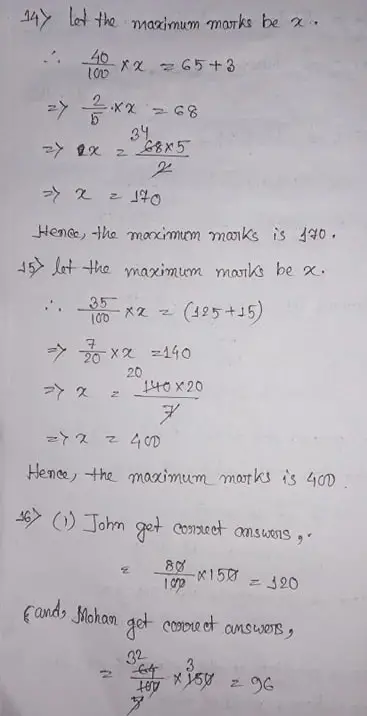 14) Let the maximum marks be x.
∴ 40/100 × x = 65+3
=> 2/5 × x = 68
=> x = 34 68×5/2
=> x = 170
Hence, the maximum marks is 170.
15) Let the maximum marks be x.
∴ 35/100 × x = (125+15)
=> 7/20 × x = 140
=> x = 20 140×20/7
=> x = 400
Hence, the maximum marks is 400.
16) (i) John get correct answers,
= 80/100 × 150 = 120
and, Mohan get correct answers,
= 32 64/100 2 × 3 150 = 96